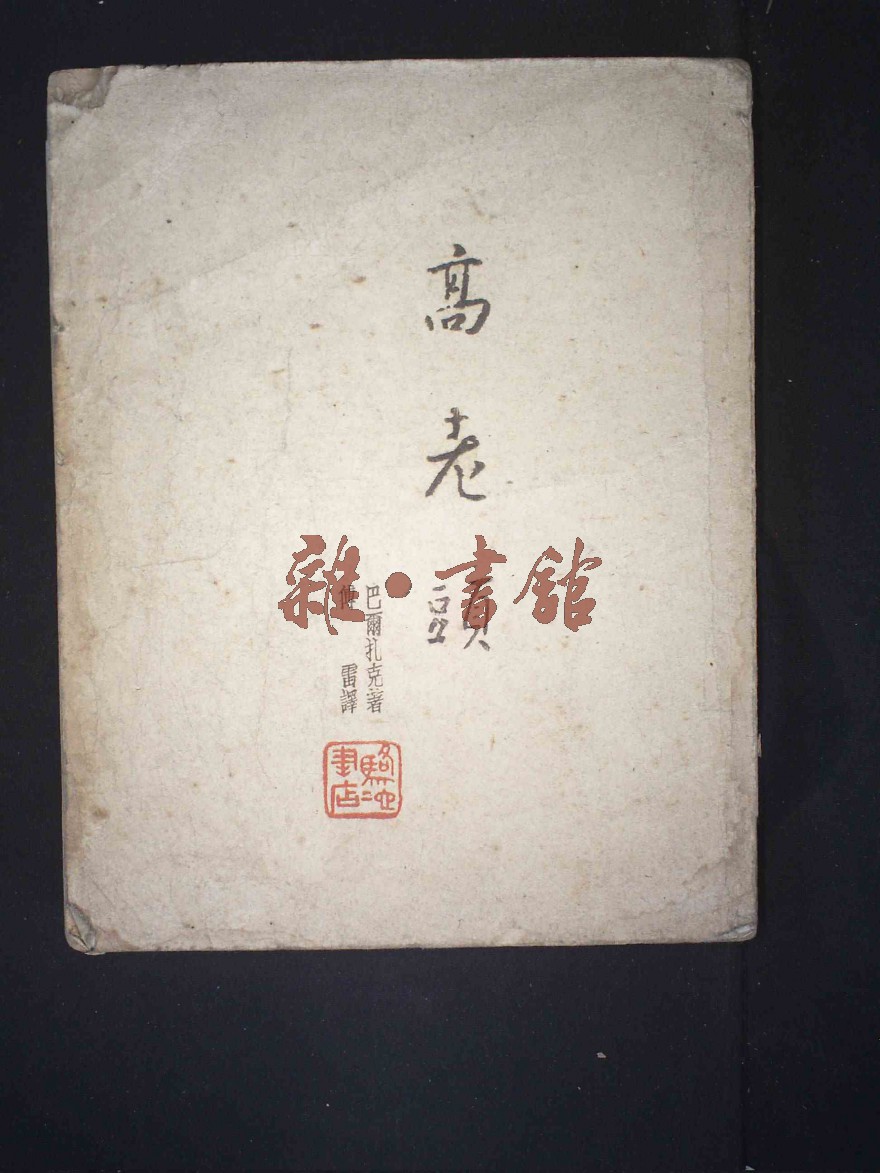 高老頭
巴爾扎克著
傅雷譯
駱駝書店
雜·書館